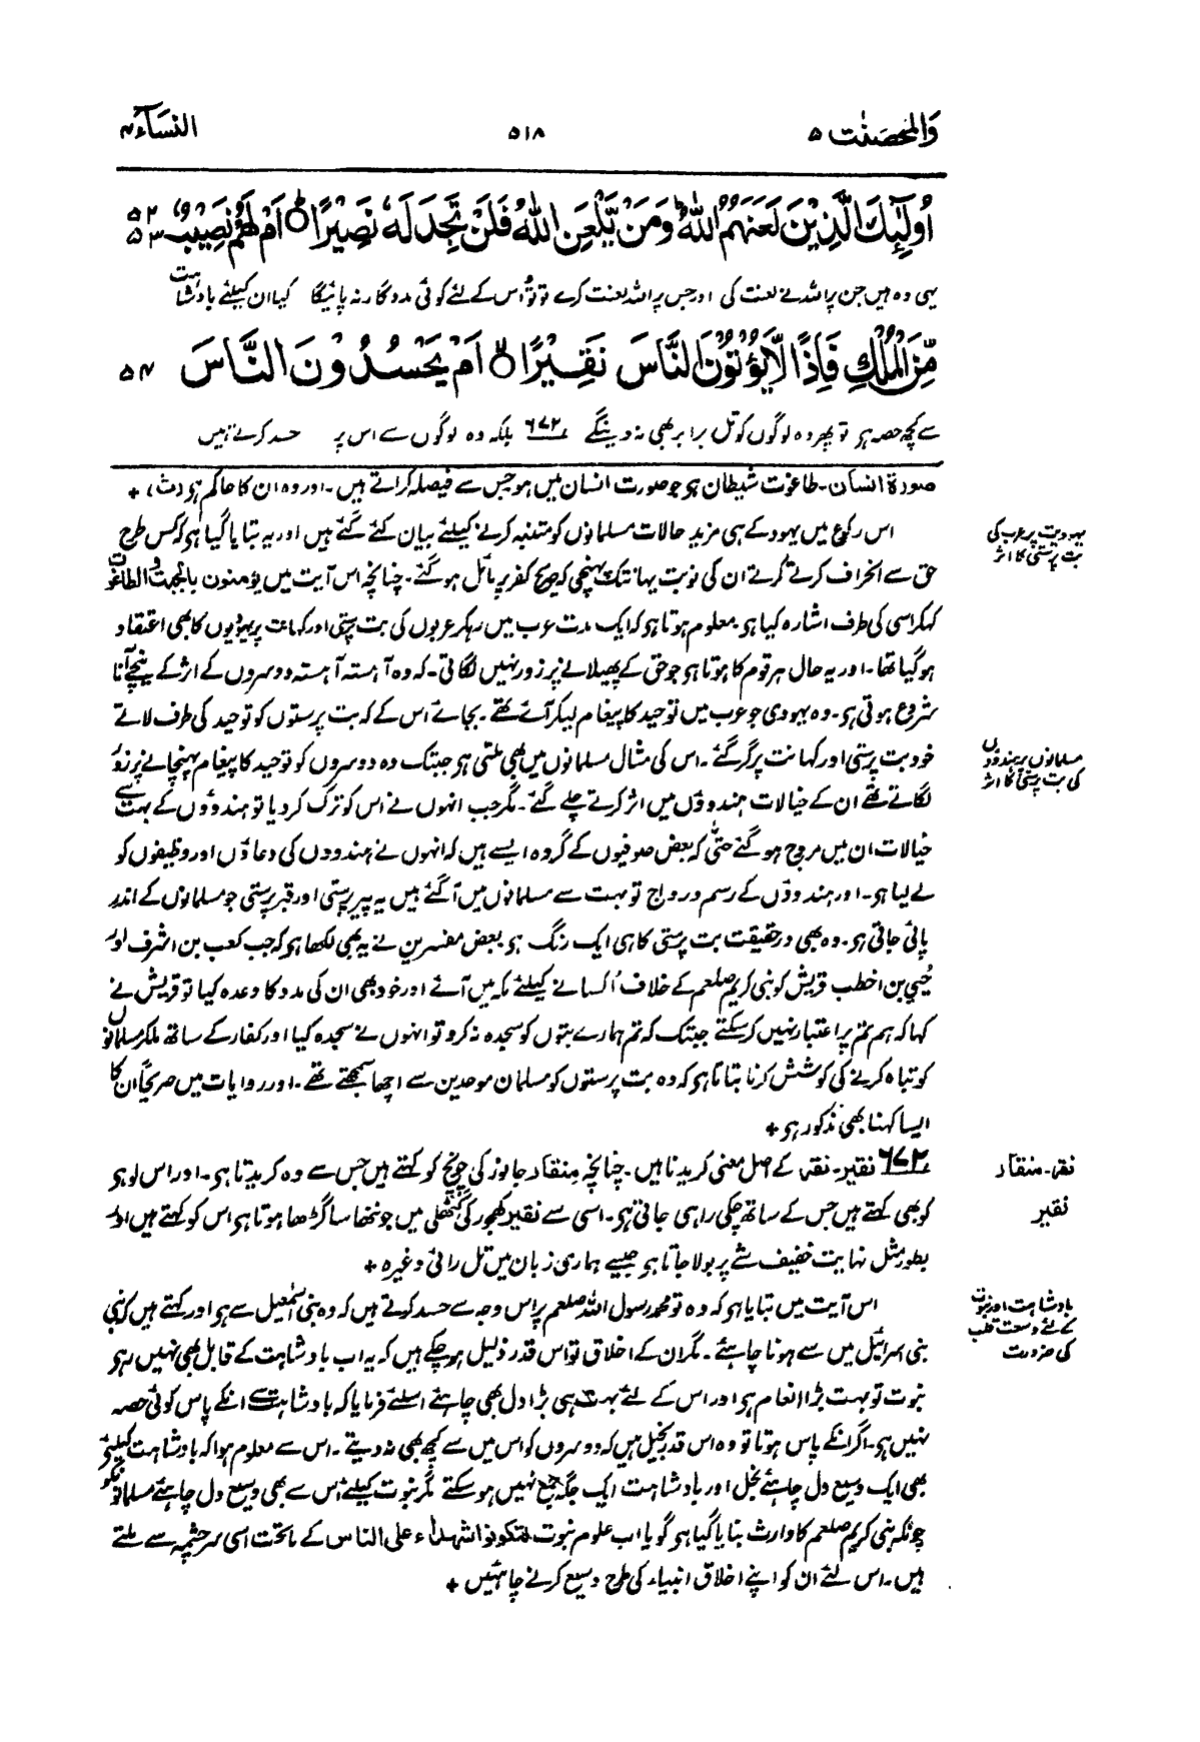 والمحصنٰت ۵
۵۱۸
النسآء ۴
اُولٰٓئِكَ الَّذِيْنَ لَعَنَهُمُ اللّٰهُ وَمَنْ يَّلْعَنِ اللّٰهُ فَلَنْ تَجِدَ لَهٗ نَصِيْرًا ۝ اَمْ لَهُمْ نَصِيْبٌ ۵۲ ۵۳
یہی وہ ہیں جن پر اللہ نے لعنت کی اور جس پر اللہ لعنت کرے تو تُو اس کے لئے کوئی مددگار نہ پائیگا کیا ان کیلئے بادشاہت
مِّنَ الْمُلْكِ فَاِذًا لَّا يُؤْتُوْنَ النَّاسَ نَقِيْرًا ۝ اَمْ يَحْسُدُوْنَ النَّاسَ ۵۴
سے کچھ حصہ ہے تو پھر وہ لوگوں کو تل برابر بھی نہ دینگے ۶۷۲ بلکہ وہ لوگوں سے اس پر حسد کرتے ہیں
صورۃ انسان۔ طاغوت شیطان ہے جو صورت انسان میں ہو جس سے فیصلہ کراتے ہیں۔ اور وہ ان کا حاکم ہو (ث)، +
اس رکوع میں یہود کے ہی مزید حالات مسلمانوں کو متنبہ کرنے کیلئے بیان کئے گئے ہیں اور یہ بتایا گیا ہو کہ کس طرح
یہودیت پر عرب کی
بت پرستی کا اثر
حق سے انحراف کرتے کرتے ان کی نوبت یہانتک پہنچی کہ صریح کفر پر مائل ہو گئے۔ چنانچہ اس آیت میں یؤمنون بالجبت والطاغوت
کہکر اسی کی طرف اشارہ کیا ہو۔ معلوم ہوتا ہو کہ ایک مدت عرب میں رہکر عربوں کی بت پرستی اور کہانت پر یہودیوں کا بھی اعتقاد
ہو گیا تھا۔ اور یہ حال ہر قوم کا ہوتا ہو جو حق کے پھیلانے پر زور نہیں لگاتی۔ کہ وہ آہستہ آہستہ دوسروں کے اثر کے نیچے آنا
شروع ہوتی ہو۔ وہ یہودی جو عرب میں توحید کا پیغام لیکر آئے تھے۔ بجائے اس کے کہ بت پرستوں کو توحید کی طرف لاتے
خود بت پرستی اور کہانت پر گر گئے۔ اس کی مثال مسلمانوں میں بھی ملتی ہو جبتک وہ دوسروں کو توحید کا پیغام پہنچانے پر زور
مسلمانوں پر ہندوؤں
کی بت پرستی کا اثر
لگاتے تھے ان کے خیالات ہندوؤں میں اثر کرتے چلے گئے۔ مگر جب انہوں نے اس کو ترک کر دیا تو ہندوؤں کے بہت سے
خیالات ان میں مروج ہو گئے حتیٰ کہ بعض صوفیوں کے گروہ ایسے ہیں کہ انہوں نے ہندووں کی دعاؤں اور وظیفوں کو
لے لیا ہو۔ اور ہندوؤں کے رسم و رواج تو بہت سے مسلمانوں میں آ گئے ہیں یہ پیر پرستی اور قبر پرستی جو مسلمانوں کے اندر
پائی جاتی ہو۔ وہ بھی درحقیقت بت پرستی کا ہی ایک رنگ ہو بعض مفسرین نے یہ بھی لکھا ہو کہ جب کعب بن اشرف اور
حُیَی بن اخطب قریش کو نبی کریم صلعم کے خلاف اُکسانے کیلئے مکہ میں آئے اور خود بھی ان کی مدد کا وعدہ کیا تو قریش نے
کہا کہ ہم تم پر اعتبار نہیں کر سکتے جبتک کہ تم ہمارے بتوں کو سجدہ نہ کرو تو انہوں نے سجدہ کیا اور کفار کے ساتھ ملکر مسلمانوں
کو تباہ کرنے کی کوشش کرنا بتاتا ہو کہ وہ بت پرستوں کو مسلمان موحدین سے اچھا سمجھتے تھے۔ اور روایات میں صریحاً ان کا
ایسا کہنا بھی مذکور ہو +
۶۷۲ نقیر۔ نقر کے اصل معنی کریدنا ہیں۔ چنانچہ منقاد جانور کی چونچ کو کہتے ہیں جس سے وہ کریدتا ہو۔ اور اس لوہے
نقر۔ منقاد
کو بھی کہتے ہیں جس کے ساتھ چکی راہی جاتی ہو۔ اسی سے نقیر کھجور کی گٹھلی میں جو ننھا سا گڑھا ہوتا ہو اس کو کہتے ہیں اور
نقیر
بطور مثل نہایت خفیف شے پر بولا جاتا ہو جیسے ہماری زبان میں تل رائی وغیرہ +
اس آیت میں بتایا ہو کہ وہ تو محمد رسول اللہ صلعم پر اس وجہ سے حسد کرتے ہیں کہ وہ بنی اسمٰعیل سے ہو اور کہتے ہیں کہ نبی
بادشاہت اور نبوت
کے لئے وسعت قلب
کی ضرورت
بنی اسرائیل میں سے ہونا چاہئے۔ مگر ان کے اخلاق تو اس قدر ذلیل ہو چکے ہیں کہ یہ اب بادشاہت کے قابل بھی نہیں رہے
نبوت تو بہت بڑا انعام ہو اور اس کے لئے بہت ہی بڑا دل بھی چاہئے اسلئے فرمایا کہ بادشاہت سے انکے پاس کوئی حصہ
نہیں ہو۔ اگر انکے پاس ہوتا تو وہ اس قدر بخیل ہیں کہ دوسروں کو اس میں سے کچھ بھی نہ دیتے۔ اس سے معلوم ہوا کہ بادشاہت کیلئے
بھی ایک وسیع دل چاہئے بخل اور بادشاہت ایک جگہ جمع نہیں ہو سکتے مگر نبوت کیلئے اس سے بھی وسیع دل چاہئے مسلمانونکو
چونکہ نبی کریم صلعم کا وارث بنایا گیا ہو گویا اب علوم نبوت لتکونوا شہداء علی الناس کے ماتحت اسی سرچشمہ سے ملتے
ہیں۔ اس لئے ان کو اپنے اخلاق انبیاء کی طرح وسیع کرنے چاہئیں +